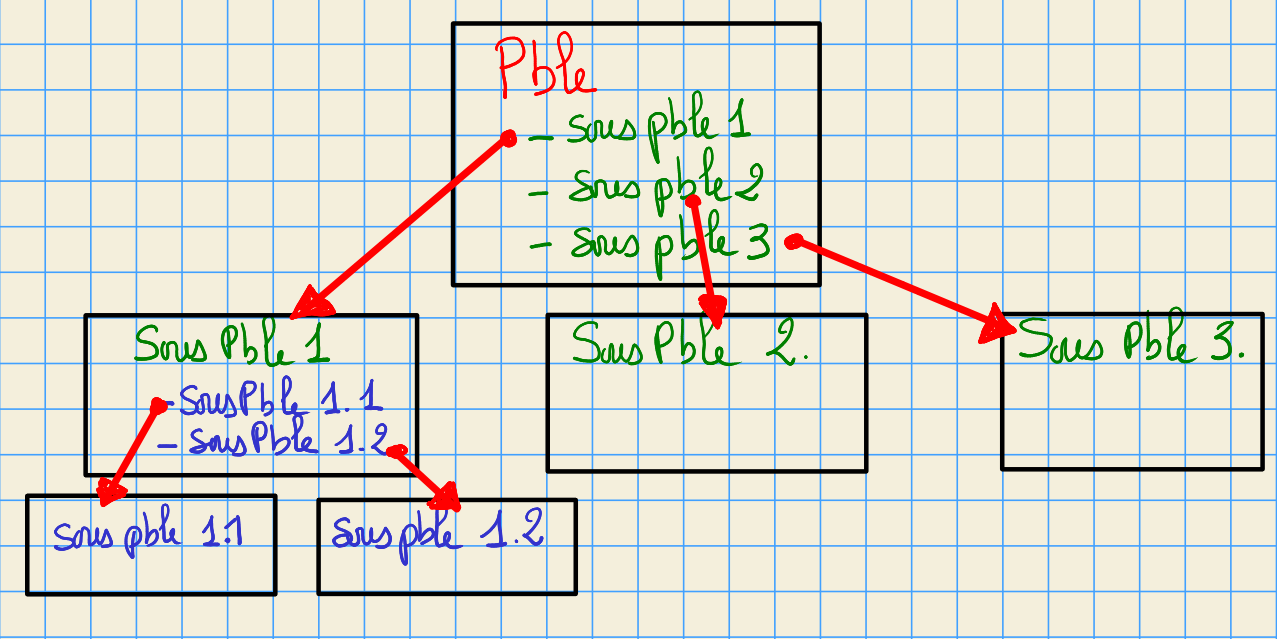 Pble
- Sous pble 1
- Sous pble 2
- Sous pble 3
Sous Pble 1
- Sous Pble 1.1
- Sous Pble 1.2
Sous Pble 2.
Sous Pble 3.
Sous pble 1.1
Sous pble 1.2